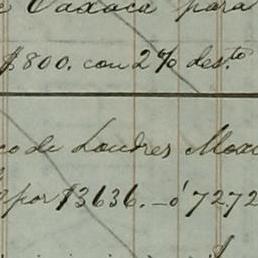 e Oaxaca para
$800. con 2% des.to
co de Londres Mexi
por $3636.—ó 7272